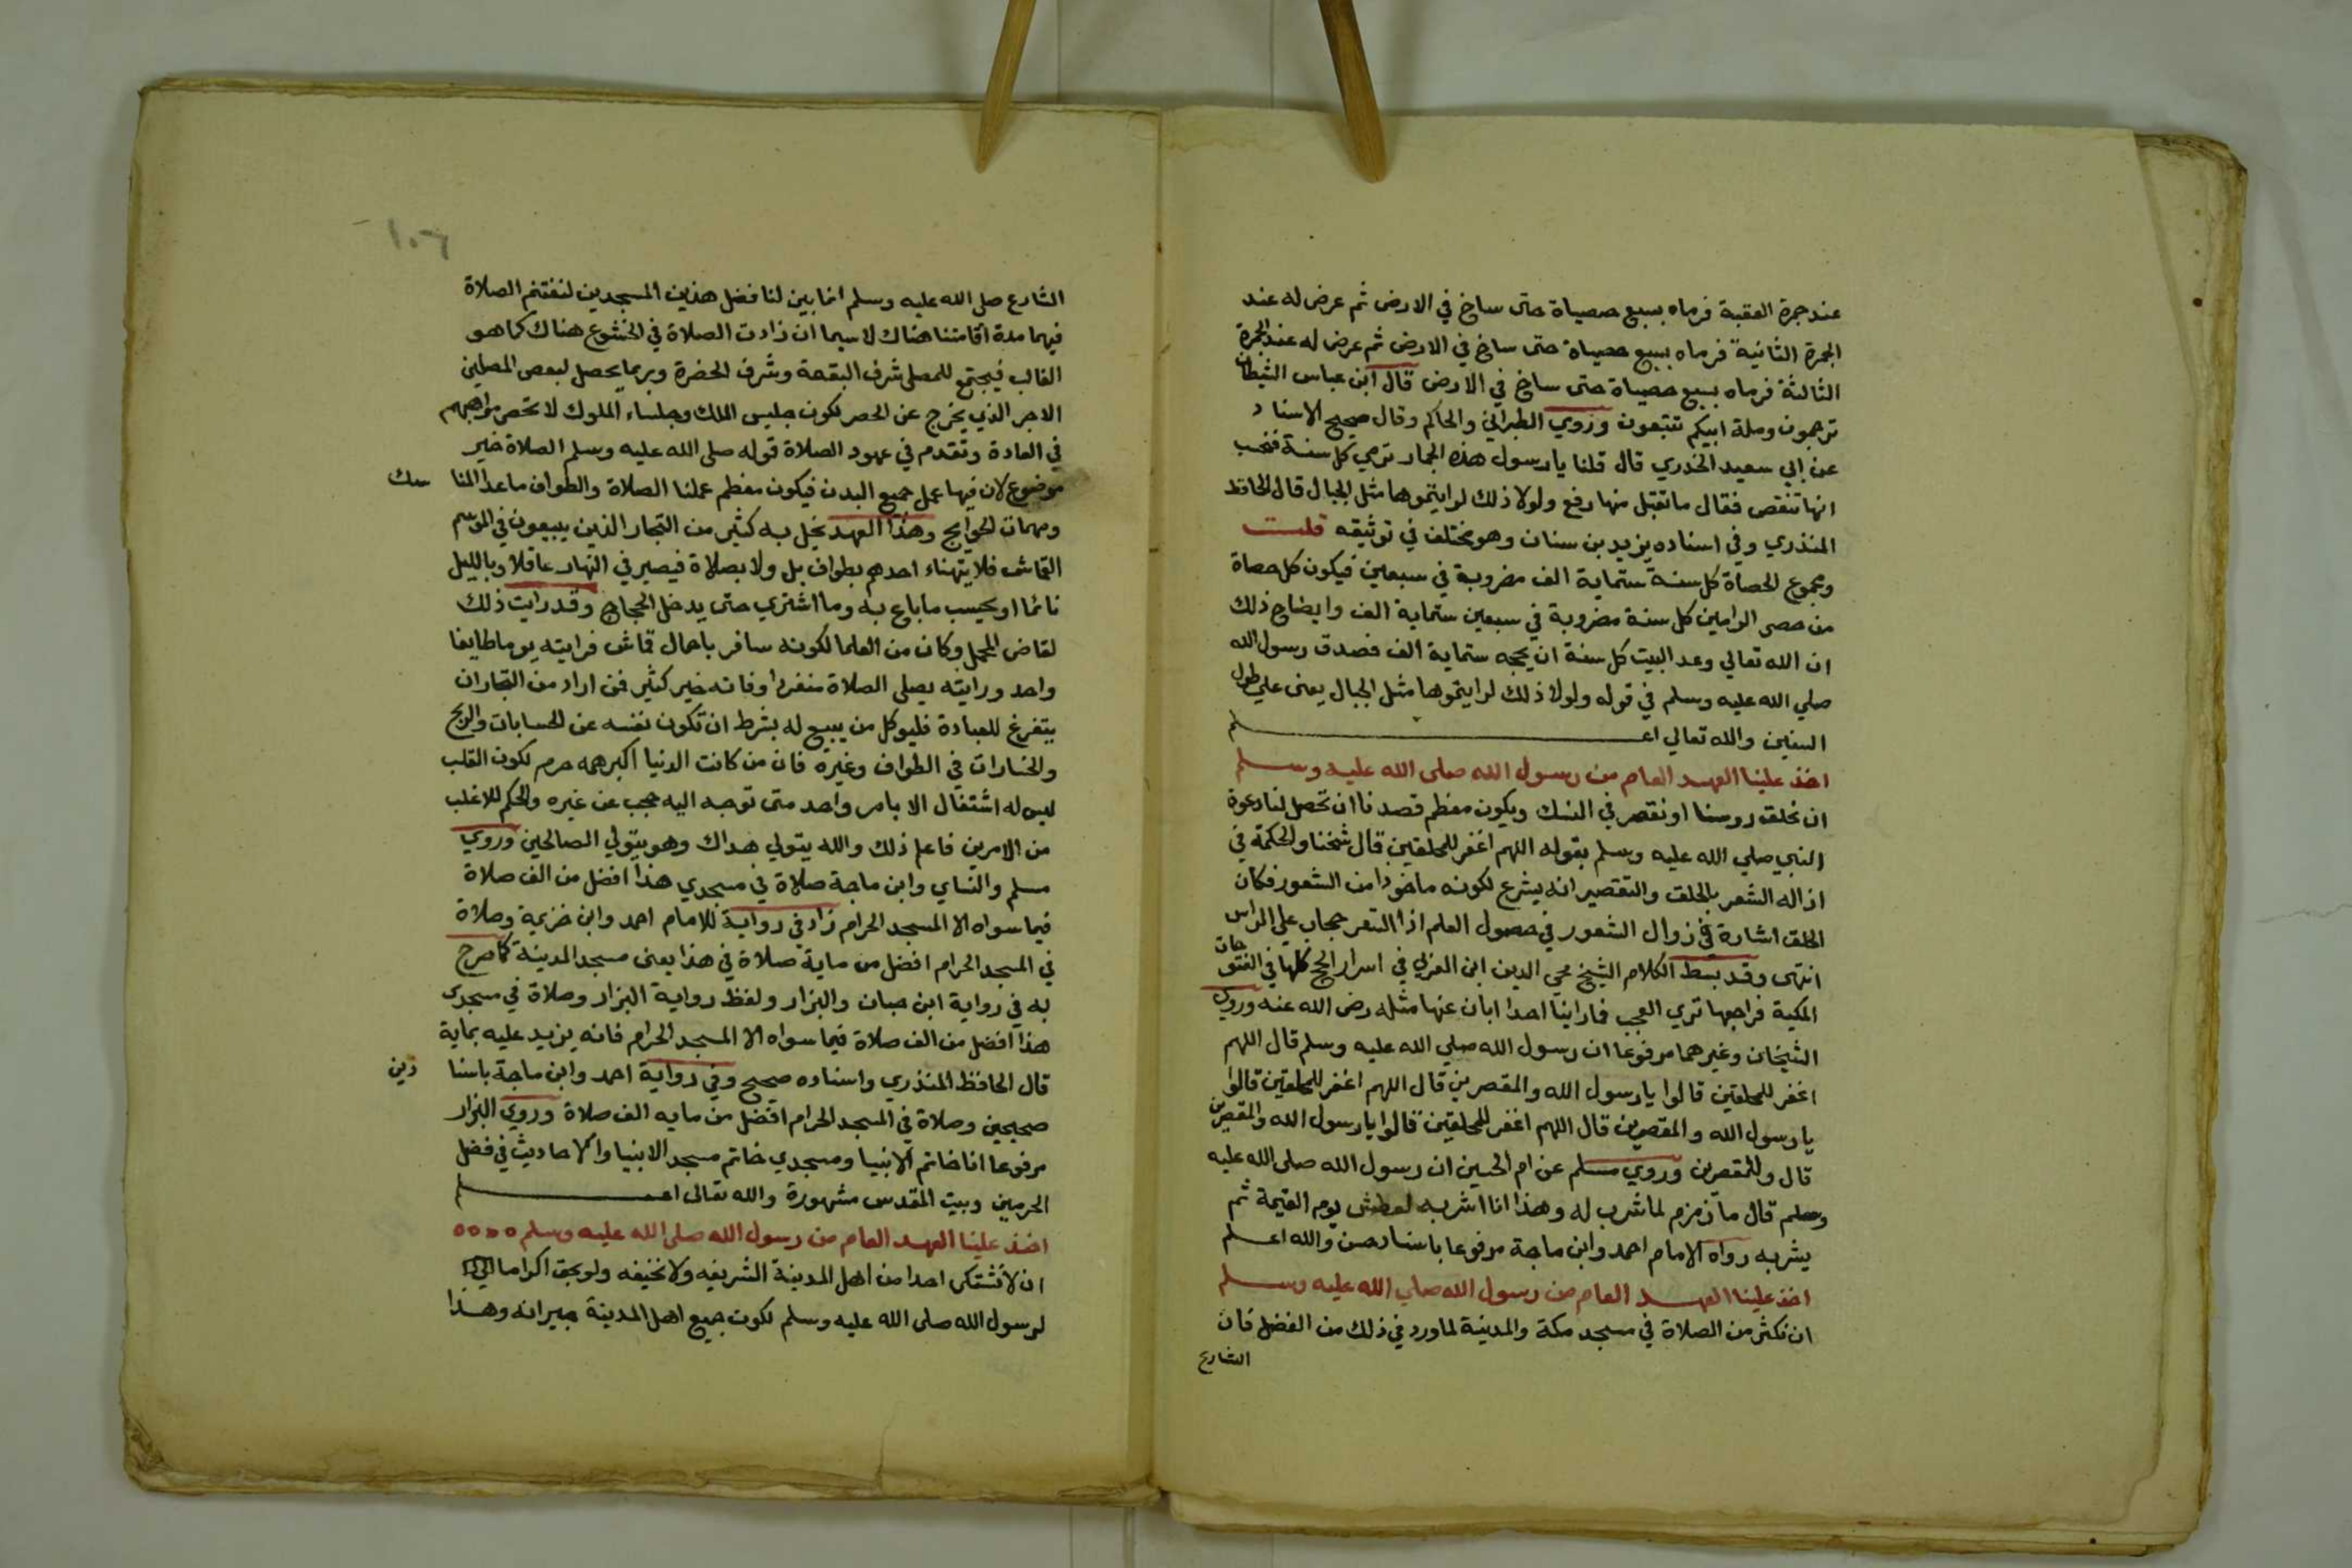 عند جمرة العقبة فرماه بسبع حصياة حتى ساخ في الارض ثم عرض له عند
الجمرة الثانية فرماه بسبع حصياة حتى ساخ في الارض ثم عرض له عند الجمرة
الثالثة فرماه بسبع حصياة حتى ساخ في الارض قال ابن عباس الشيطان
ترجمون وملة ابيكم تتبعون وروي الطبراني والحاكم وقال صحيح الاسناد
عن ابي سعيد الخدري قال قلنا يا رسول هذه الجمار ترمي كل سنة فنحسب
انها تنقص فقال ما تقبل منها رفع ولولا ذلك لرايتموها مثل الجبال قال الحافظ
المنذري وفي اسناده يزيد بن سنان وهو مختلف في توثيقه قلت
ومجموع الحصاة كل سنة ستماية الف مضروبة في سبعين فيكون كل حصاة
من حصى الرامين كل سنة مضروبة في سبعين ستماية الف وايضاح ذلك
ان الله تعالي وعد البيت كل سنة ان يحجه ستماية الف فصدق رسول الله
صلي الله عليه وسلم في قوله ولولا ذلك لرايتموها مثل الجبال يعنى علي طول
السنين والله تعالي اعلم
اخذ علينا العهد العام من رسول الله صلى الله عليه وسلم
ان نحلق روسنا او نقصر في النسك ويكون معظم قصدنا ان تحصل لنا دعوة
النبي صلي الله عليه وسلم بقوله اللهم اغفر للمحلقين قال شيخنا والحكمة في
ازاله الشعر بالحلق والتقصير انه يشرع لكونه ماخوذا من الشعور فكان
الحلق اشارة في زوال الشعور في حصول العلم اذا الشعر حجاب علي الراس
انتهى وقد بسط الكلام الشيخ محي الدين ابن العربي في اسرار الحج كلها في الفتوحات
المكية فراجعها تري العجب فما راينا احدا ابان عنها مثله رضى الله عنه وروي
الشيخان وغيرهما مرفوعا ان رسول الله صلي الله عليه وسلم قال اللهم
اغفر للمحلقين قالوا يا رسول الله والمقصرين قال اللهم اغفر للمحلقين قالوا
يا رسول الله والمقصرين قال اللهم اغفر للمحلقين قالوا يا رسول الله والمقصرين
قال وللمقصرين وروي مسلم عن ام الحسين ان رسول الله صلى الله عليه
وسلم قال ما زمزم لما شرب له وهذا انا اشربه لعطش يوم القيمة ثم
يشربه رواه الامام احمد وابن ماجة مرفوعا باسناد حسن والله اعلم
اخذ علينا العهد العام من رسول الله صلي الله عليه وسلم
ان نكثر من الصلاة في مسجد مكة والمدينة لما ورد في ذلك من الفضل فان
الشارع
١٠٦
الشارع صلى الله عليه وسلم انما بين لنا فضل هذين المسجدين لنغتنم الصلاة
فيهما مدة اقامتنا هناك لا سيما ان زادت الصلاة في الخشوع هناك كما هو
الغالب فيجتمع للمصلي شرف البقعة وشرف الحضرة وربما يحصل لبعض المصلين
الاجر الذي يخرج عن الحصر لكون جليس الملك وجلساء الملوك لا تحصر مواهبهم
في العادة وتقدم في عهود الصلاة قوله صلى الله عليه وسلم الصلاة خير
موضوع لان فيها عمل جميع البدن فيكون معظم عملنا الصلاة والطواف ماعدا المناسك
ومهمات الحوايج وهذا العهد يخل به كثير من التجار الذين يبيعون في الموسم
القماش فلا يتهناء احدهم بطواف بل ولا بصلاة فيصير في النهار غافلا وبالليل
نائما او يحسب ما باع به وما اشتري حتى يدخل الحجاج وقد رايت ذلك
لقاضى المحمل وكان من العلما لكونه سافر باحمال قماش فرايته يوما طايفا
واحد ورايته يصلي الصلاة منفردا وفاته خير كثير فمن اراد من التجار ان
يتفرغ للعبادة فليوكل من يبيع له بشرط ان تكون نفسه عن الحسابات والربح
والخسارات في الطواف وغيره فان من كانت الدنيا اكبر همه حرم لكون القلب
ليس له اشتغال الا بامر واحد متى توجه اليه حجب عن غيره والحكم للاغلب
من الامرين فاعلم ذلك والله يتولي هداك وهو يتولي الصالحين وروي
مسلم والنساي وابن ماجة صلاة في مسجدي هذا افضل من الف صلاة
فيما سواه الا المسجد الحرام زاد في رواية للامام احمد وابن خزيمة وصلاة
في المسجد الحرام افضل من ماية صلاة في هذا يعنى مسجد المدينة كما صرح
به في رواية ابن حبان والبزار ولفظ رواية البزار وصلاة في مسجدي
هذا افضل من الف صلاة فيما سواه الا المسجد الحرام فانه يزيد عليه بماية
قال الحافظ المنذري واسناده صحيح وفي رواية احمد وابن ماجة باسنادين
صحيحين وصلاة في المسجد الحرام افضل من مايه الف صلاة وروي البزار
مرفوعا انا خاتم الانبيا ومسجدي خاتم مسجد الانبيا والاحاديث في فضل
الحرمين وبيت المقدس مشهورة والله تعالى اعلم
اخذ علينا العهد العام من رسول الله صلى الله عليه وسلم
ان لا نشتكى احدا من اهل المدينة الشريفه ولا نخيفه ولو بحق اكراما
لرسول الله صلى الله عليه وسلم لكون جميع اهل المدينة جيرانه وهذا